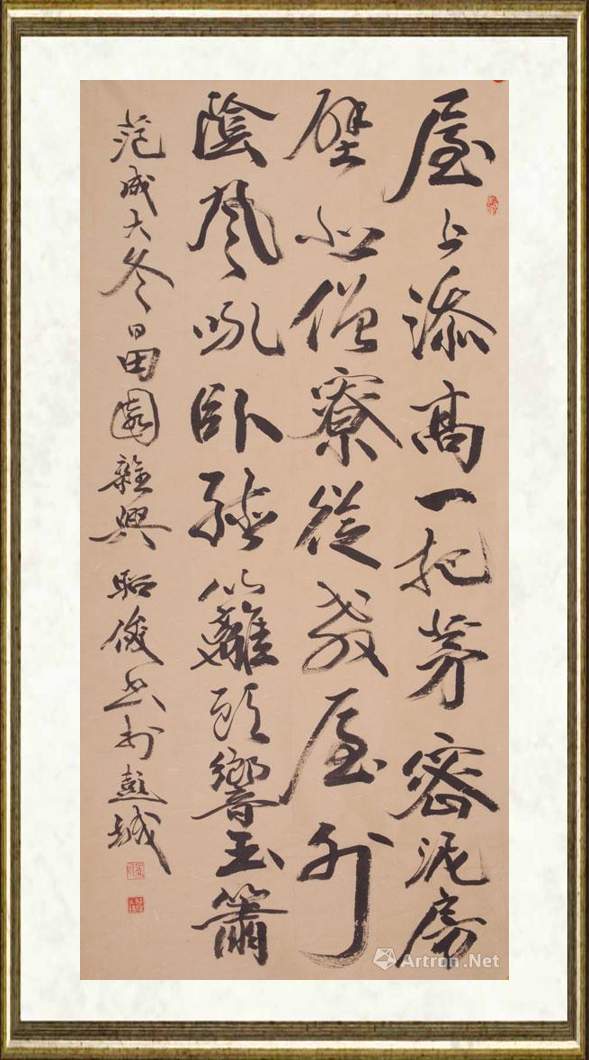 屋上添高一把茅密泥房
壁似僧寮從教屋外
陰風吼臥聽籬頭響玉簫
范成大冬日田園雜興 昭俊書於彭城
Artron.Net